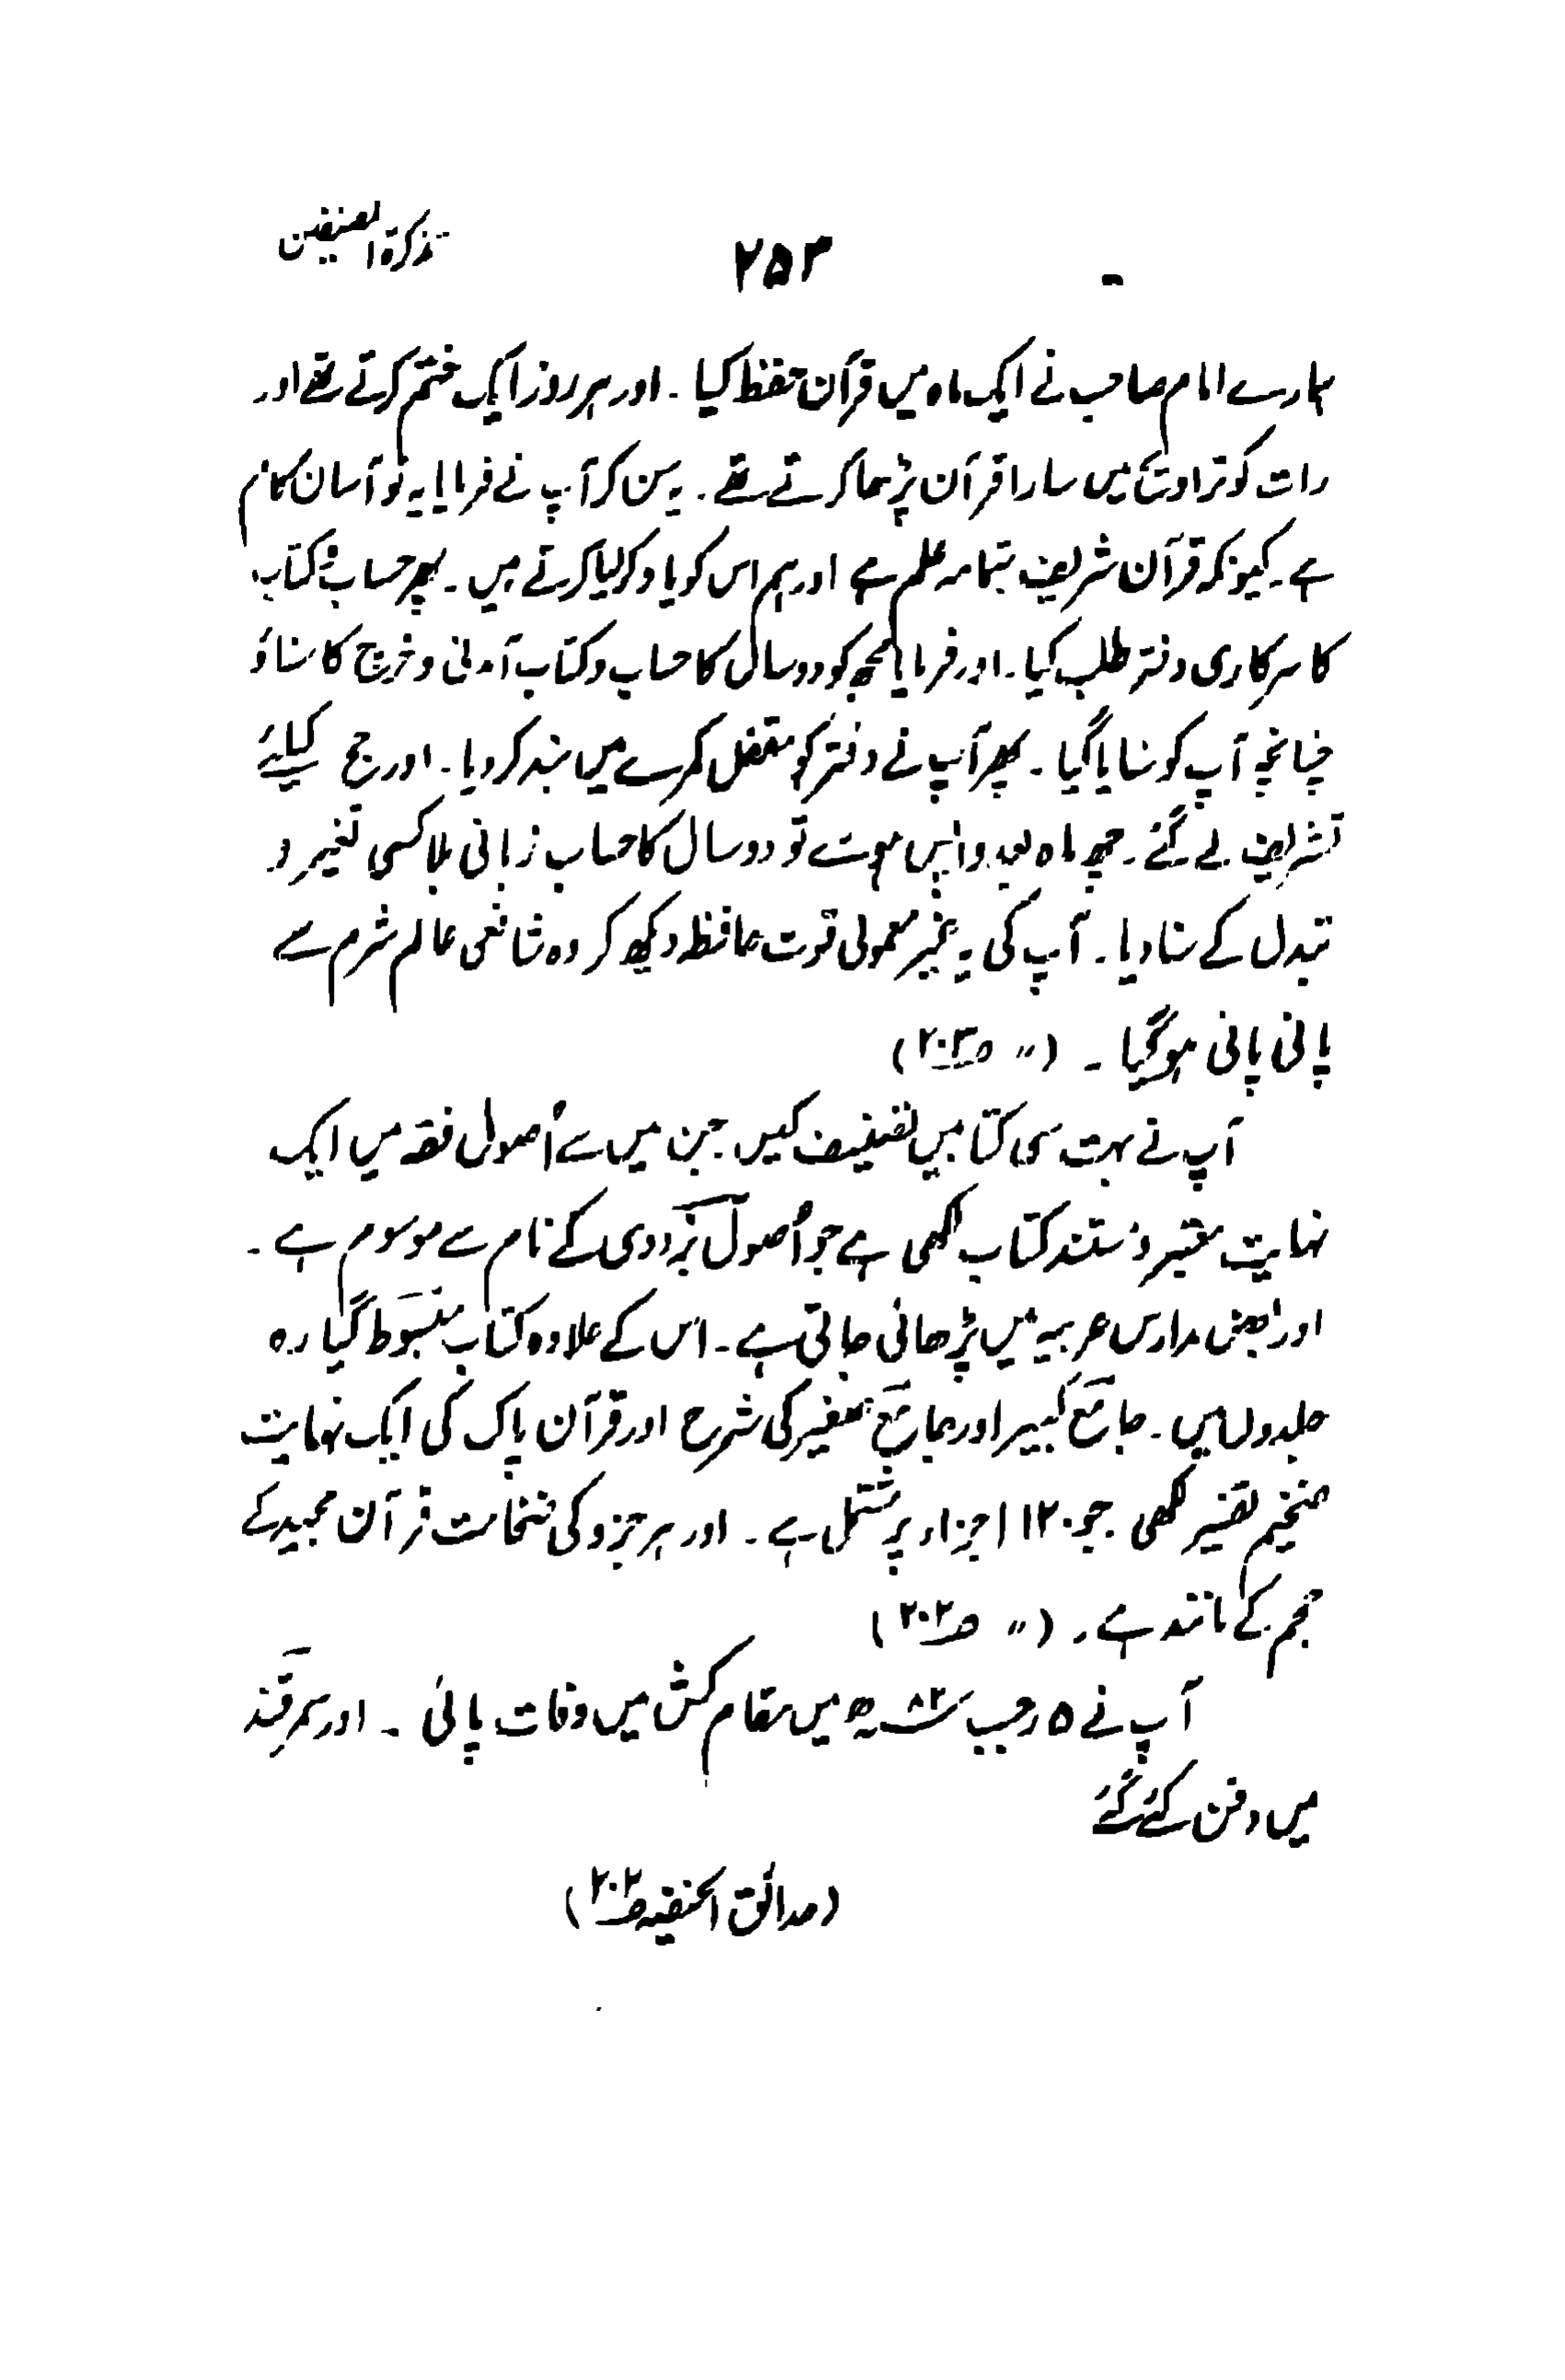 تذکرۃ المصنفین
۲۵۳
ہمارے امام صاحب نے ایک ماہ میں قرآن حفظ کیا۔ اور ہر روز ایک ختم کرتے تھے اور
رات کو تراویح میں سارا قرآن پڑھا کرتے تھے۔ یہ سن کر آپ نے فرمایا یہ تو آسان کام
ہے۔ کیونکہ قرآن شریف بتمامہ علم ہے اور ہم اس کو یاد کر لیا کرتے ہیں۔ پھر حساب و کتاب
کا سرکاری دفتر طلب کیا۔ اور فرمایا مجھ کو دو سال کا حساب و کتاب آمدنی و خرچ کا سناؤ
چنانچہ آپ کو سنایا گیا۔ پھر آپ نے دفتر کو مقفل کمرے میں بند کر دیا۔ اور حج کیلئے
تشریف لے گئے۔ چھ ماہ بعد واپس ہوئے تو دو سال کا حساب زبانی بلا کسی تغیر و
تبدل کے سنا دیا۔ آپ کی یہ غیر معمولی قوت حافظہ دیکھ کر وہ شافعی عالم شرم سے
پانی پانی ہو گیا۔ (〃 ص۲۰۳)
آپ نے بہت سی کتابیں تصنیف کیں۔ جن میں سے اُصول فقہ میں ایک
نہایت معتبر و مُستند کتاب لکھی ہے جو اُصول بزدوی کے نام سے موسوم ہے۔
اور بعض مدارس عربیہ میں پڑھائی جاتی ہے۔ اس کے علاوہ کتاب مبسوط گیارہ
جلدوں میں۔ جامع کبیر اور جامع صغیر کی شرح اور قرآن پاک کی ایک نہایت
ضخیم تفسیر لکھی جو ۱۲۰ اجزاء پر مشتمل ہے۔ اور ہر جزو کی ضخامت قرآن مجید کے
حجم کے مانند ہے۔ (〃 ص۲۰۲)
آپ نے ۵ رجب ۴۸۲ھ میں مقام کش میں وفات پائی۔ اور سمرقند
میں دفن کئے گئے
(حدائق الحنفیہ ص۲۰۲)